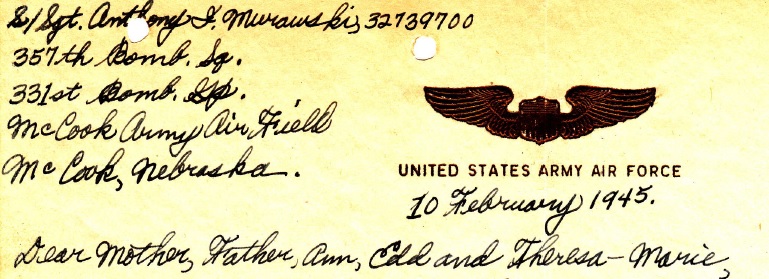 S/Sgt. Anthony F. Murawski, 32739700
357th Bomb. Sq.
331st Bomb. Gp.
McCook Army Air Field
McCook, Nebraska.
UNITED STATES ARMY AIR FORCE
10 February 1945.
Dear Mother, Father, Ann, Edd and Theresa-Marie,